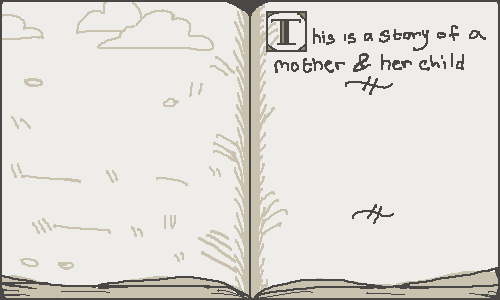 This is a story of a
mother & her child